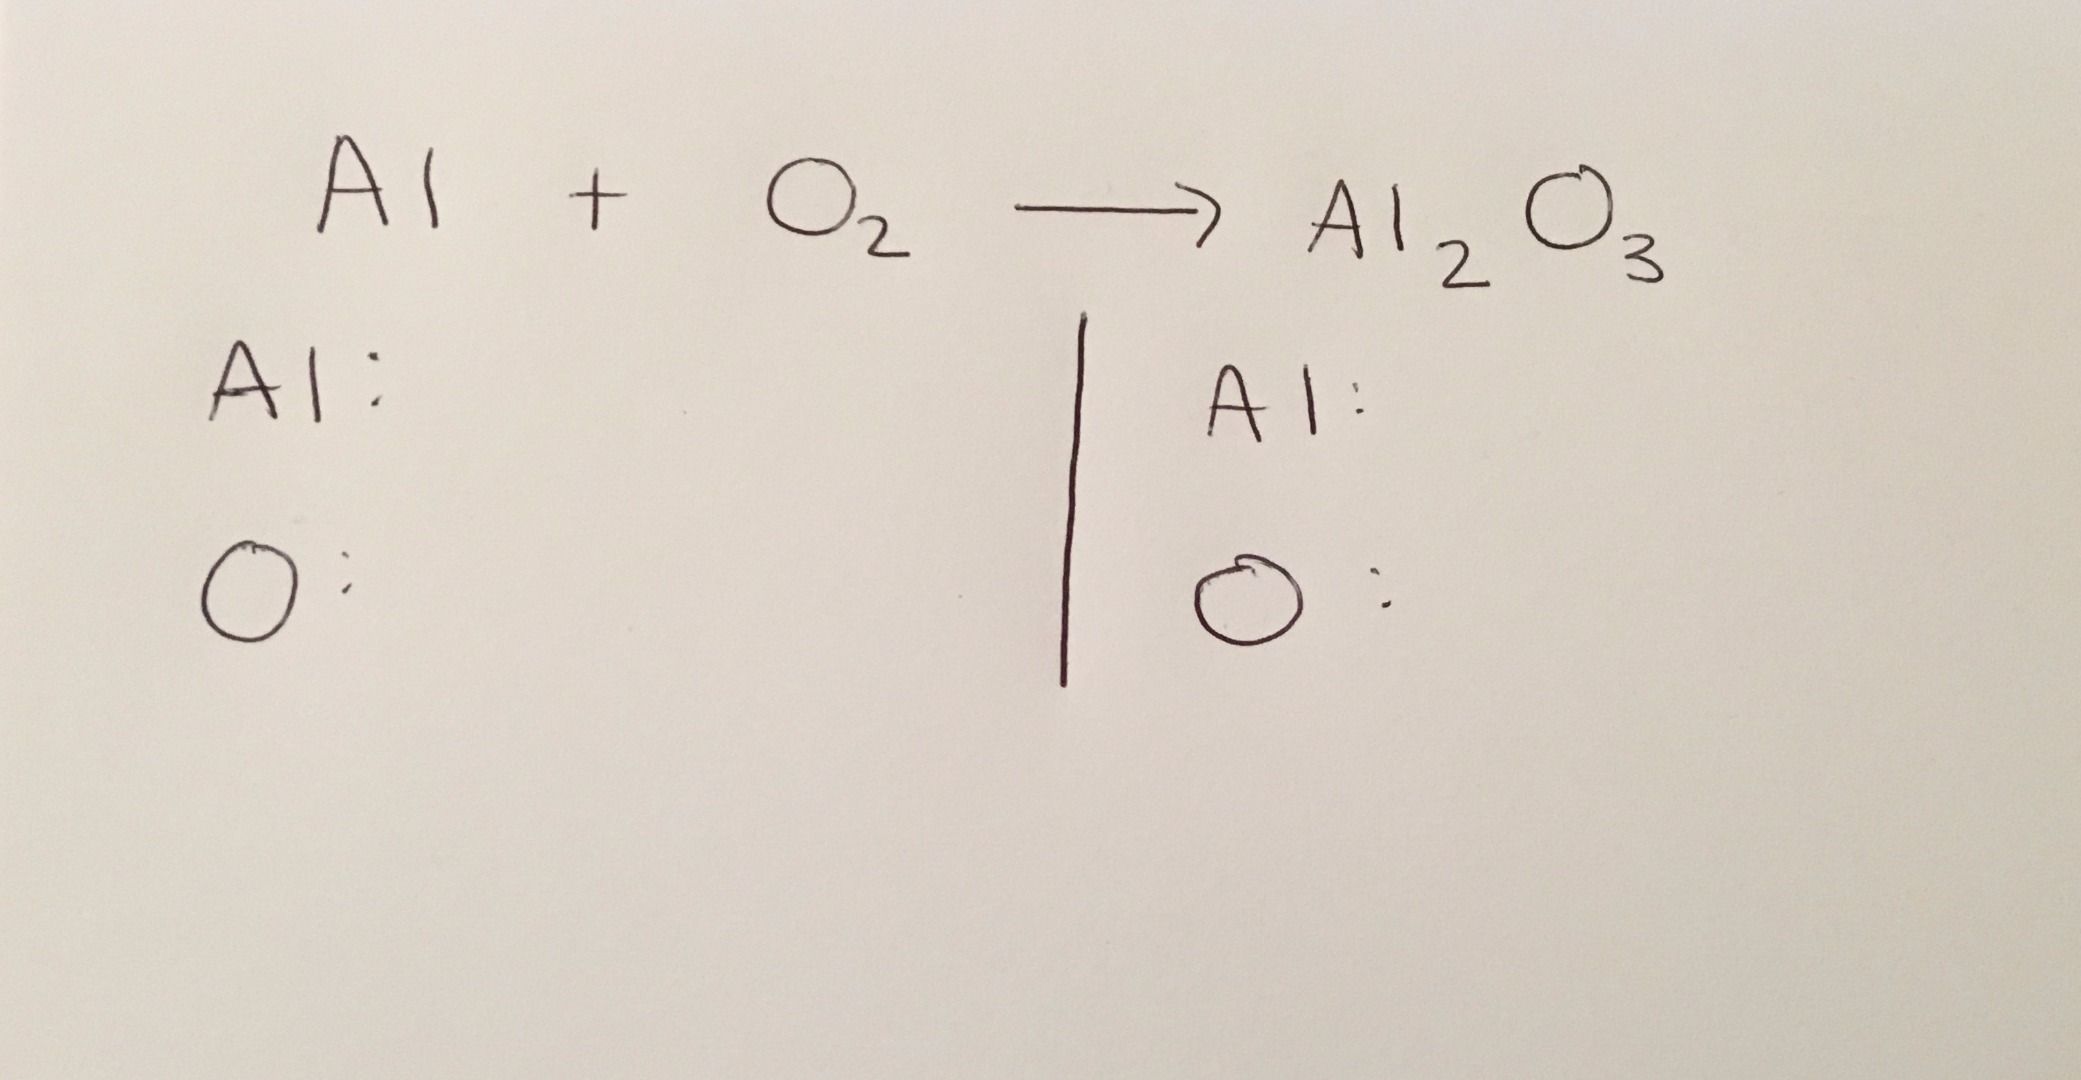 Al + O₂ → Al₂O₃
Al: Al:
O: O: